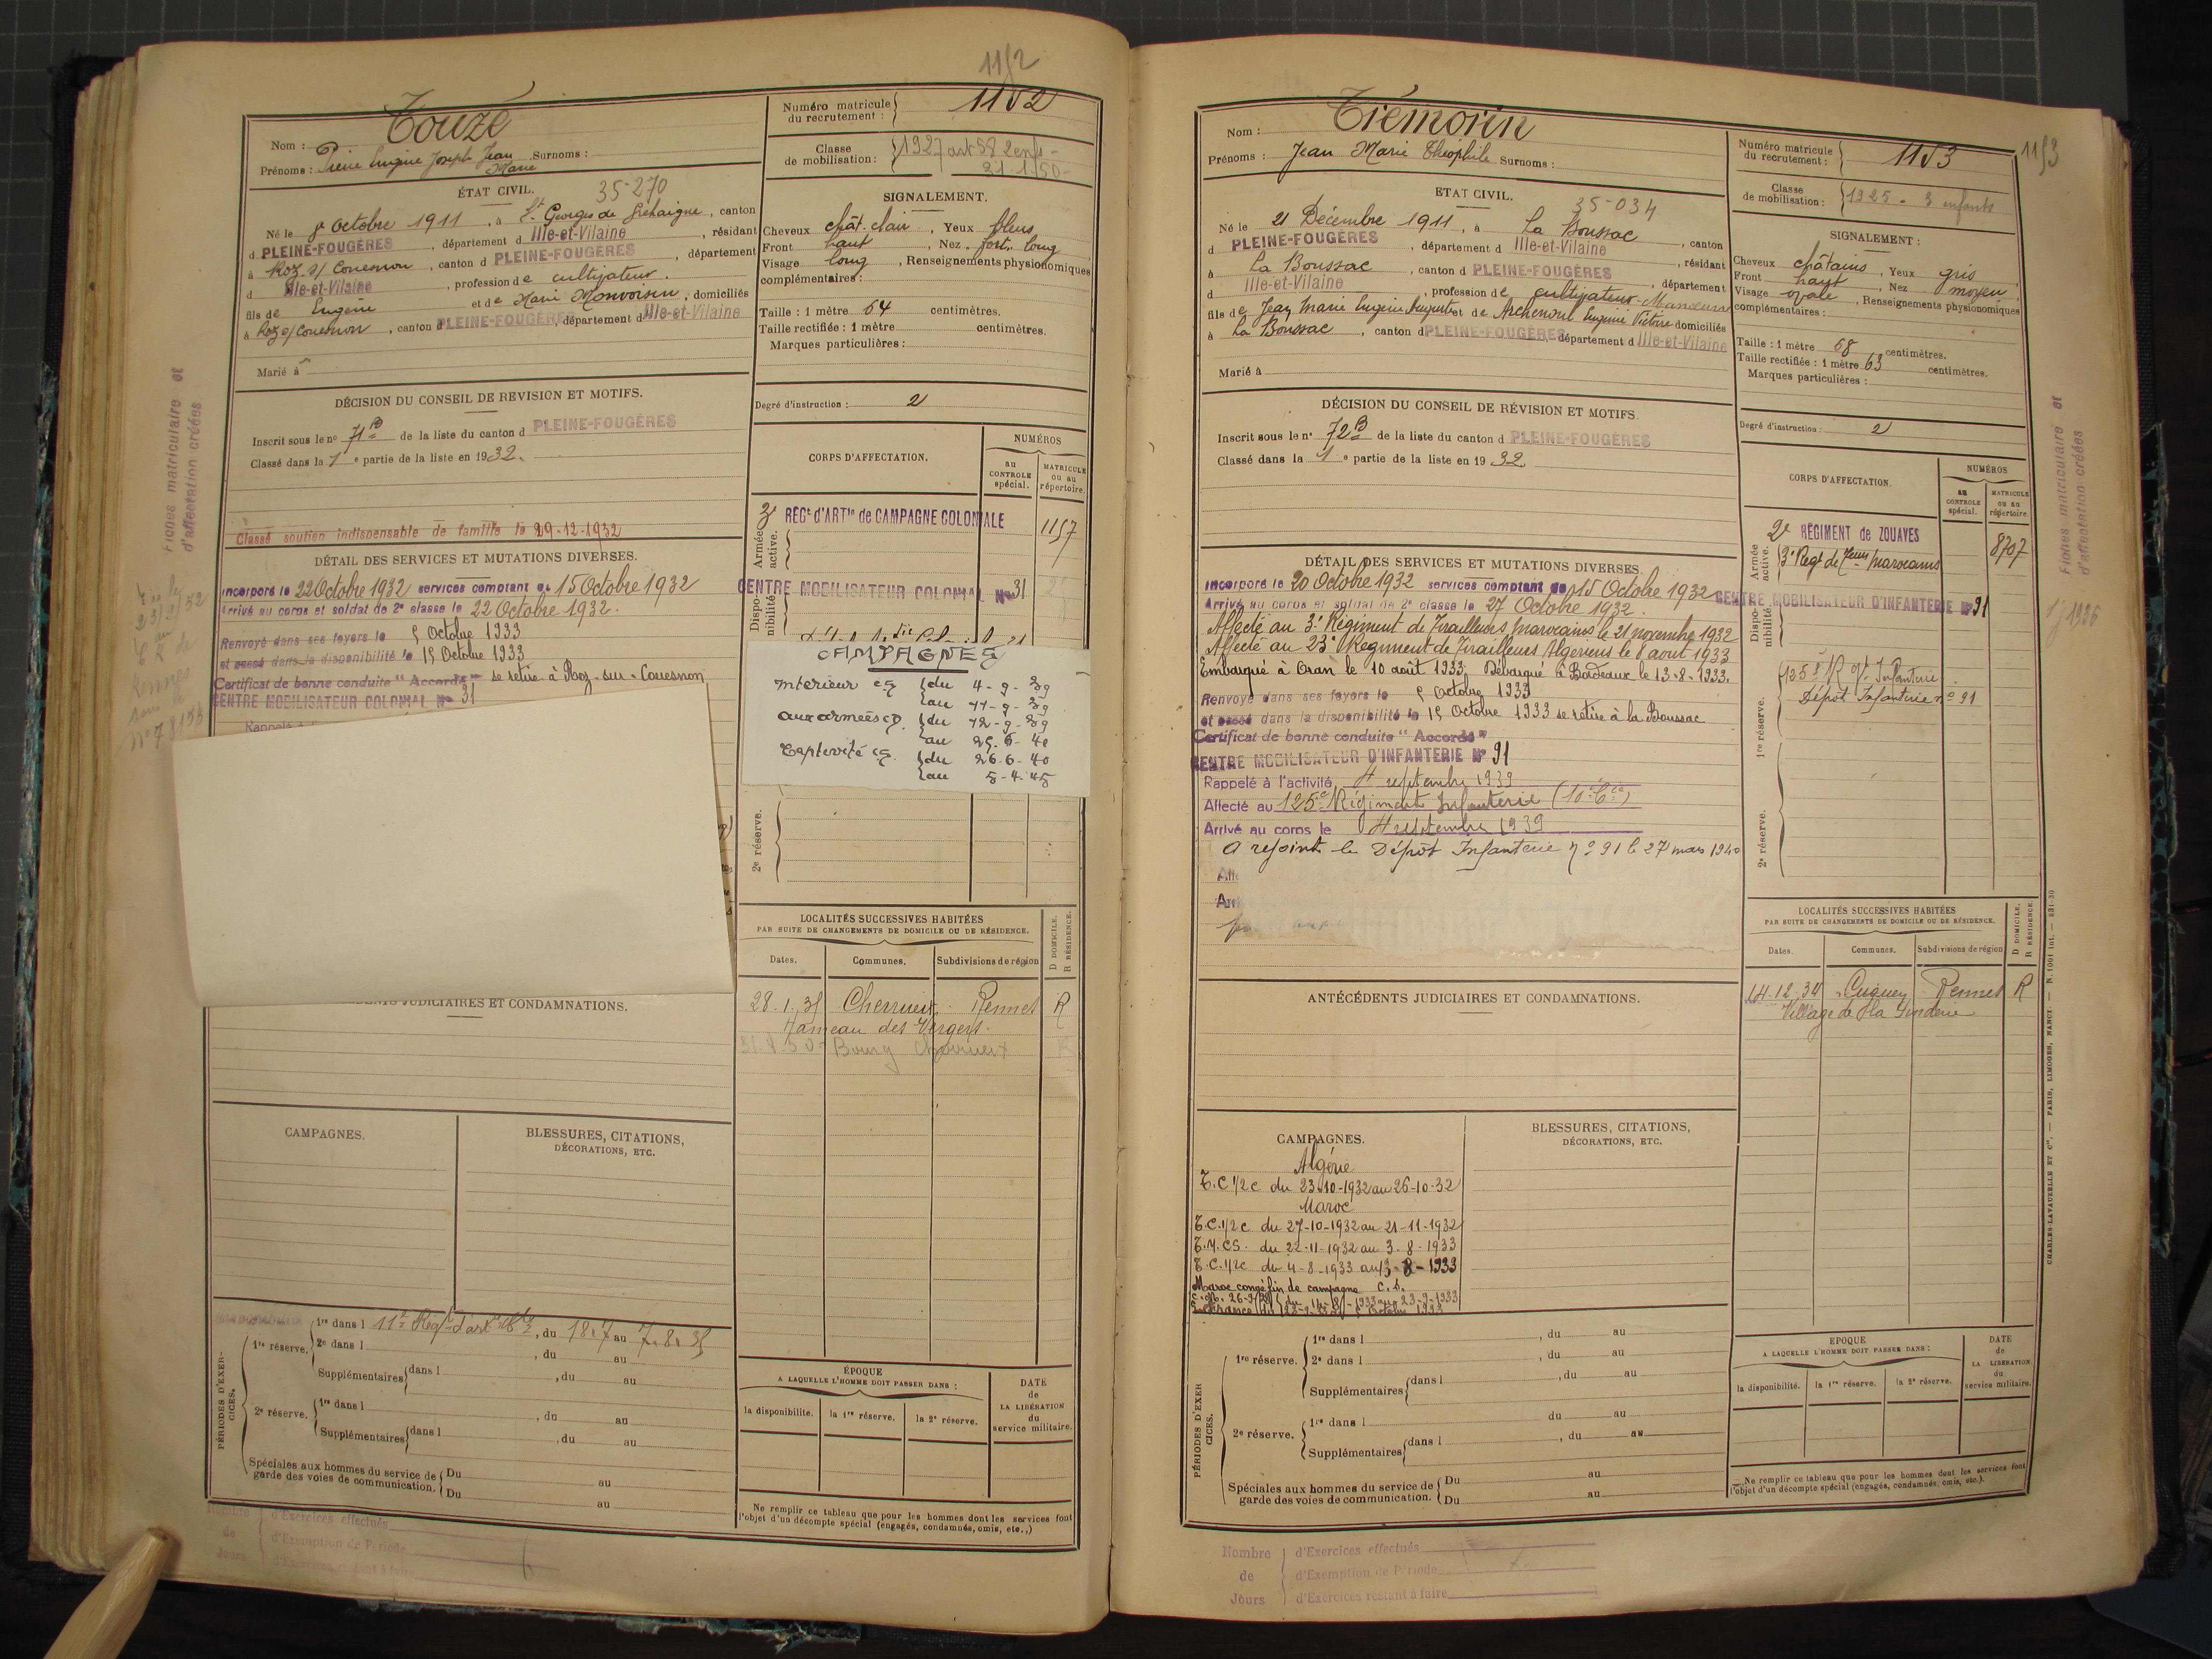 1152
Touzé
Nom :
Prénoms : Pierre Eugène Joseph Jean Marie Surnoms :
Numéro matricule du recrutement : 1152
Classe de mobilisation : 1927 art 58 2 enf
21-1-50-
ÉTAT CIVIL.
35-270
Né le Octobre 1911, à St Georges de Gréhaigne, canton
d PLEINE-FOUGÈRES, département d Ille-et-Vilaine, résidant
à Roz s/ Couesnon, canton d PLEINE-FOUGÈRES, département
d Ille-et-Vilaine, profession de cultivateur.
fils de Eugène et de Marie Monvoisin, domiciliés
à Roz s/ Couesnon, canton d PLEINE-FOUGÈRES, département d Ille-et-Vilaine
Marié à
SIGNALEMENT.
Cheveux chât. clair, Yeux bleus
Front haut, Nez fort, long
Visage long, Renseignements physionomiques
complémentaires :
Taille : 1 mètre 64 centimètres.
Taille rectifiée : 1 mètre centimètres.
Marques particulières :
Degré d'instruction : 2
DÉCISION DU CONSEIL DE REVISION ET MOTIFS.
Inscrit sous le n° 71 B de la liste du canton d PLEINE-FOUGÈRES
Classé dans la 1e partie de la liste en 1932.
Classé soutien indispensable de famille le 29-12-1932
Fiches matriculaire et
d'affectation créées
DÉTAIL DES SERVICES ET MUTATIONS DIVERSES.
Incorporé le 22 Octobre 1932 services comptant du 15 Octobre 1932
Arrivé au corps et soldat de 2e classe le 22 Octobre 1932.
Renvoyé dans ses foyers le 5 Octobre 1933
et passé dans la disponibilité le 15 Octobre 1933
Certificat de bonne conduite "Accordé" se retire à Roz-sur-Couesnon
CENTRE MOBILISATEUR COLONIAL N° 31
Rappelé
CORPS D'AFFECTATION.
NUMÉROS
au CONTROLE spécial.
MATRICULE ou au répertoire.
Armée active.
3e REGt d'ARTie de CAMPAGNE COLONIALE 1157
Disponibilité
CENTRE MOBILISATEUR COLONIAL N° 31
CAMPAGNES
Intérieur CS du 4-9-39
au 11-9-39
aux armées CD du 12-9-39
au 25-6-40
Captivité CS du 26-6-40
au 5-4-45
2e réserve.
LOCALITÉS SUCCESSIVES HABITÉES
PAR SUITE DE CHANGEMENTS DE DOMICILE OU DE RÉSIDENCE.
D DOMICILE.
R RÉSIDENCE.
Dates. Communes. Subdivisions de région
28.1.35 Cherrueix Rennes R
Hameau des Vergers.
31.8.50 Bourg Cherrueix R
JUDICIAIRES ET CONDAMNATIONS.
CAMPAGNES.
BLESSURES, CITATIONS,
DÉCORATIONS, ETC.
PÉRIODES D'EXERCICES.
1re réserve. 1re dans l 11e Régt d'art Cle, du 18.7 au 7.8.35
2e dans l , du au
Supplémentaires dans l , du au
2e réserve. 1re dans l , du au
Supplémentaires dans l , du au
Spéciales aux hommes du service de garde des voies de communication. Du au
Du au
ÉPOQUE
A LAQUELLE L'HOMME DOIT PASSER DANS :
la disponibilité. la 1re réserve. la 2e réserve.
DATE de LA LIBÉRATION du service militaire.
Ne remplir ce tableau que pour les hommes dont les services font
l'objet d'un décompte spécial (engagés, condamnés, omis, etc.,)
Nombre de Jours
d'Exercices effectués
d'Exemption de Période
d'Exercices restant à faire
Trémorin
Nom :
Prénoms : Jean Marie Théophile Surnoms :
Numéro matricule du recrutement : 1153
1153
Classe de mobilisation : 1925 - 3 enfants
ETAT CIVIL.
35-034
Né le 21 Décembre 1911, à La Boussac, canton
d PLEINE-FOUGÈRES, département d Ille-et-Vilaine, résidant
à La Boussac, canton d PLEINE-FOUGÈRES, département
d Ille-et-Vilaine, profession de cultivateur - Manoeuvre
fils de Jean Marie Eugène Auguste et de Archenoul Eugénie Victoire domiciliés
à La Boussac, canton d PLEINE-FOUGÈRES, département d Ille-et-Vilaine
Marié à
SIGNALEMENT :
Cheveux châtains, Yeux gris
Front haut, Nez moyen
Visage ovale, Renseignements physionomiques
complémentaires :
Taille : 1 mètre 68 centimètres.
Taille rectifiée : 1 mètre 63 centimètres.
Marques particulières :
Degré d'instruction : 2
DÉCISION DU CONSEIL DE RÉVISION ET MOTIFS.
Inscrit sous le n° 72 B de la liste du canton d PLEINE-FOUGÈRES
Classé dans la 1e partie de la liste en 1932.
Fiches matriculaire et
d'affectation créées
DÉTAIL DES SERVICES ET MUTATIONS DIVERSES.
Incorporé le 20 Octobre 1932 services comptant du 15 Octobre 1932
Arrivé au corps et soldat de 2e classe le 27 Octobre 1932.
Affecté au 3e Régiment de Tirailleurs marocains le 21 novembre 1932
Affecté au 23e Régiment de Tirailleurs Algériens le 8 août 1933
Embarqué à Oran le 10 août 1933. Débarqué à Bordeaux le 13-8-1933.
Renvoyé dans ses foyers le 5 Octobre 1933
et passé dans la disponibilité le 15 Octobre 1933 se retire à la Boussac
Certificat de bonne conduite "Accordé"
CENTRE MOBILISATEUR D'INFANTERIE N° 91
Rappelé à l'activité 4 septembre 1939
Affecté au 125e Régiment Infanterie (10e Cie)
Arrivé au corps le 4 septembre 1939
A rejoint le Dépôt Infanterie n° 91 le 27 mars 1940
CORPS D'AFFECTATION.
NUMÉROS
au CONTROLE spécial.
MATRICULE ou au répertoire.
Armée active.
2e RÉGIMENT de ZOUAVES 8707
3e Régt de Tirailleurs marocains
Disponibilité
CENTRE MOBILISATEUR D'INFANTERIE N° 91
1936
1re réserve.
125e R gt Infanterie.
Dépôt Infanterie n° 91
2e réserve.
ANTÉCÉDENTS JUDICIAIRES ET CONDAMNATIONS.
LOCALITÉS SUCCESSIVES HABITÉES
PAR SUITE DE CHANGEMENTS DE DOMICILE OU DE RÉSIDENCE.
D DOMICILE.
R RÉSIDENCE.
Dates. Communes. Subdivisions de région
14.12.34 Cuguen Rennes R
Village de la
CAMPAGNES.
Algérie
T.C 1/2 c du 23-10-1932 au 26-10-32
Maroc
T.C. 1/2 c du 27-10-1932 au 21-11-1932
T.M. CS. du 22-11-1932 au 3-8-1933
T.C. 1/2c du 4-8-1933 au 13-8-1933
Maroc congé fin de campagne C.S.
BLESSURES, CITATIONS,
DÉCORATIONS, ETC.
PÉRIODES D'EXERCICES.
1re réserve. 1re dans l , du au
2e dans l , du au
Supplémentaires dans l , du au
2e réserve. 1re dans l du au
Supplémentaires dans l , du au
Spéciales aux hommes du service de garde des voies de communication. Du au
Du au
EPOQUE
A LAQUELLE L'HOMME DOIT PASSER DANS :
la disponibilité. la 1re réserve. la 2e réserve.
DATE de LA LIBERATION du service militaire.
Ne remplir ce tableau que pour les hommes dont les services font
l'objet d'un décompte spécial (engagés, condamnés, omis, etc.).
CHARLES-LAVAUZELLE ET Cie. — PARIS, LIMOGES, NANCY.
Nombre de Jours
d'Exercices effectués
d'Exemption de Période
d'Exercices restant à faire